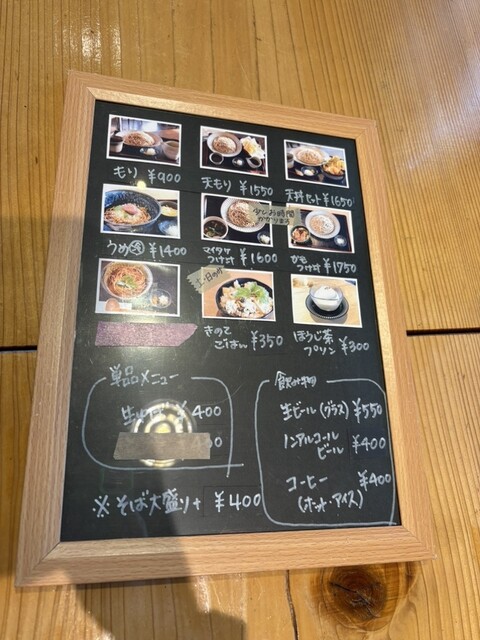 もり ¥900
天もり ¥1550
天丼セット ¥1650
うめ冷 ¥1400
マイタケ
つけそば ¥1600
少しお時間
かかります
かも
つけそば ¥1750
土・日のみ
きのこ
ごはん ¥350
ほうじ茶
プリン ¥300
単品メニュー
生ゆば ¥400
飲み物
生ビール(グラス) ¥550
ノンアルコール
ビール ¥400
コーヒー ¥400
(ホット・アイス)
※そば大盛り+ ¥400